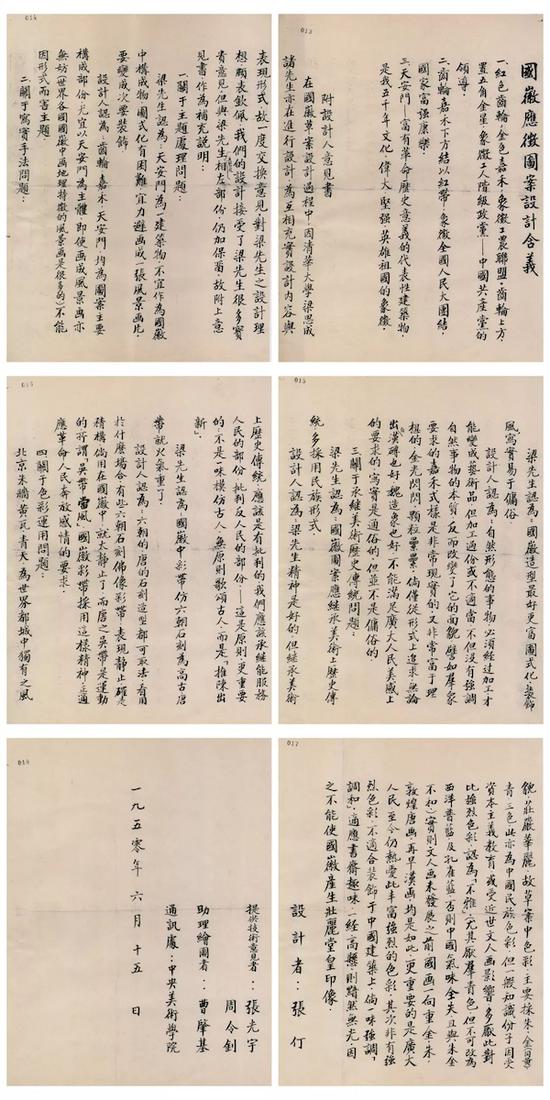 013
國徽應徵圖案設計含義
一、紅色齒輪，金色嘉禾，象徵工農聯盟。齒輪上方，
置五角金星，象徵工人階級政黨——中國共產黨的
領導。
二、齒輪嘉禾下方結以紅帶——象徵全國人民大團結，
國家富强康樂。
三、天安門——富有革命歷史意義的代表性建築物，
是我五千年文化，偉大堅强，英雄祖國的象徵。
附設計人意見書
在國徽草案設計過程中，因清華大學梁思成
諸先生亦在進行設計，為互相充實設計內容與
014
表現形式，故一度交換意見，對梁先生之設計理
想，願表欽佩，我們的設計接受了梁先生很多寶
貴意見，但與梁先生相左部份，仍加保留，故附上意
見書作為補充說明：
一、關于主題處理問題：
梁先生認為：天安門為一建築物，不宜作為國徽
中構成物，圖式化有困難，宜力避畫成一張風景畫片，
要變成次要裝飾。
設計人認為：齒輪、嘉禾、天安門，均為圖案主要
構成部份，尤宜以天安門為主體，即使畫成風景畫亦
無妨（世界各國國徽中畫地理特徵的風景畫是很多的）不能
因形式而害主題。
二、關于寫實手法問題：
015
梁先生認為：國徽造型最好更富圖式化、裝飾
風，寫實易于傭俗。
設計人認為：自然形態的事物，必須經過加工才
能變成藝術品，但加工過份或不適當，不但沒有强調
自然事物的本質，反而改變了它的面貌，譬如羣象
要求的嘉禾式樣是非常現實的，又非常富于理
想的，金光閃閃，顆粒纍纍，倘僅從形式上追求，無論
出漢磚也好，魏造象也好，不能滿足廣大人民美感上
的要求的，寫實是通俗的，但並不是傭俗的。
三、關于承繼歷史傳統問題：
梁先生認為：國徽圖案應繼承美術上歷史傳
統，多採用民族形式。
設計人認為：梁先生精神是好的，但繼承美術
016
上歷史傳統，應該是有批判的，我們應該承繼能服務
人民的部份，批判反人民的部份——這是原則，更重要
的：不是一味模仿古人，無原則歌頌古人，而是「推陳出
新」。
梁先生認為：國徽中彩帶仿六朝石刻為高古，唐
帶就火氣重了。
設計人認為：六朝的，唐的石刻造型都可取法，看用
於什麽場合，有些六朝石刻佛像彩帶，表現靜止，確是
精構，倘用在國徽中，就太靜止了，而唐之吳帶是運動
的，所謂「吳帶當風」，國徽彩帶採用這樣精神，正適
應革命人民奔放感情的要求。
四、關于色彩運用問題：
北京朱牆，黃瓦，青天，為世界都城中獨有之風
017
貌，莊嚴華麗，故草案中色彩，主要採朱、金（同黃）
青三色，此亦為中國民族色彩，但一般知識份子因受
資本主義教育，或受近世文人畫影響，多厭此對
比强烈色彩，認為「不雅」（尤其厭羣青色，但不可改為
西洋普藍，及孔雀藍，否則中國氣味全失，且與朱金
不和）實則文人畫未發展之前，國畫一向重金、朱，
敦煌唐畫，再早漢畫，均是如此，更重要的是廣大
人民，至今仍熱愛此丰富强烈的色彩，其次非有强
烈色彩，不適合裝飾于中國建築上，倘一味强調
調和，適應書齋趣味，一經高懸，則黯然無光，因
之不能使國徽產生壯麗堂皇印像。
設計者：張仃
018
提供技術意見者：張光宇
周令釗
助理繪圖者：曹肇基
通訊處：中央美術學院
一九五零年六月十五日